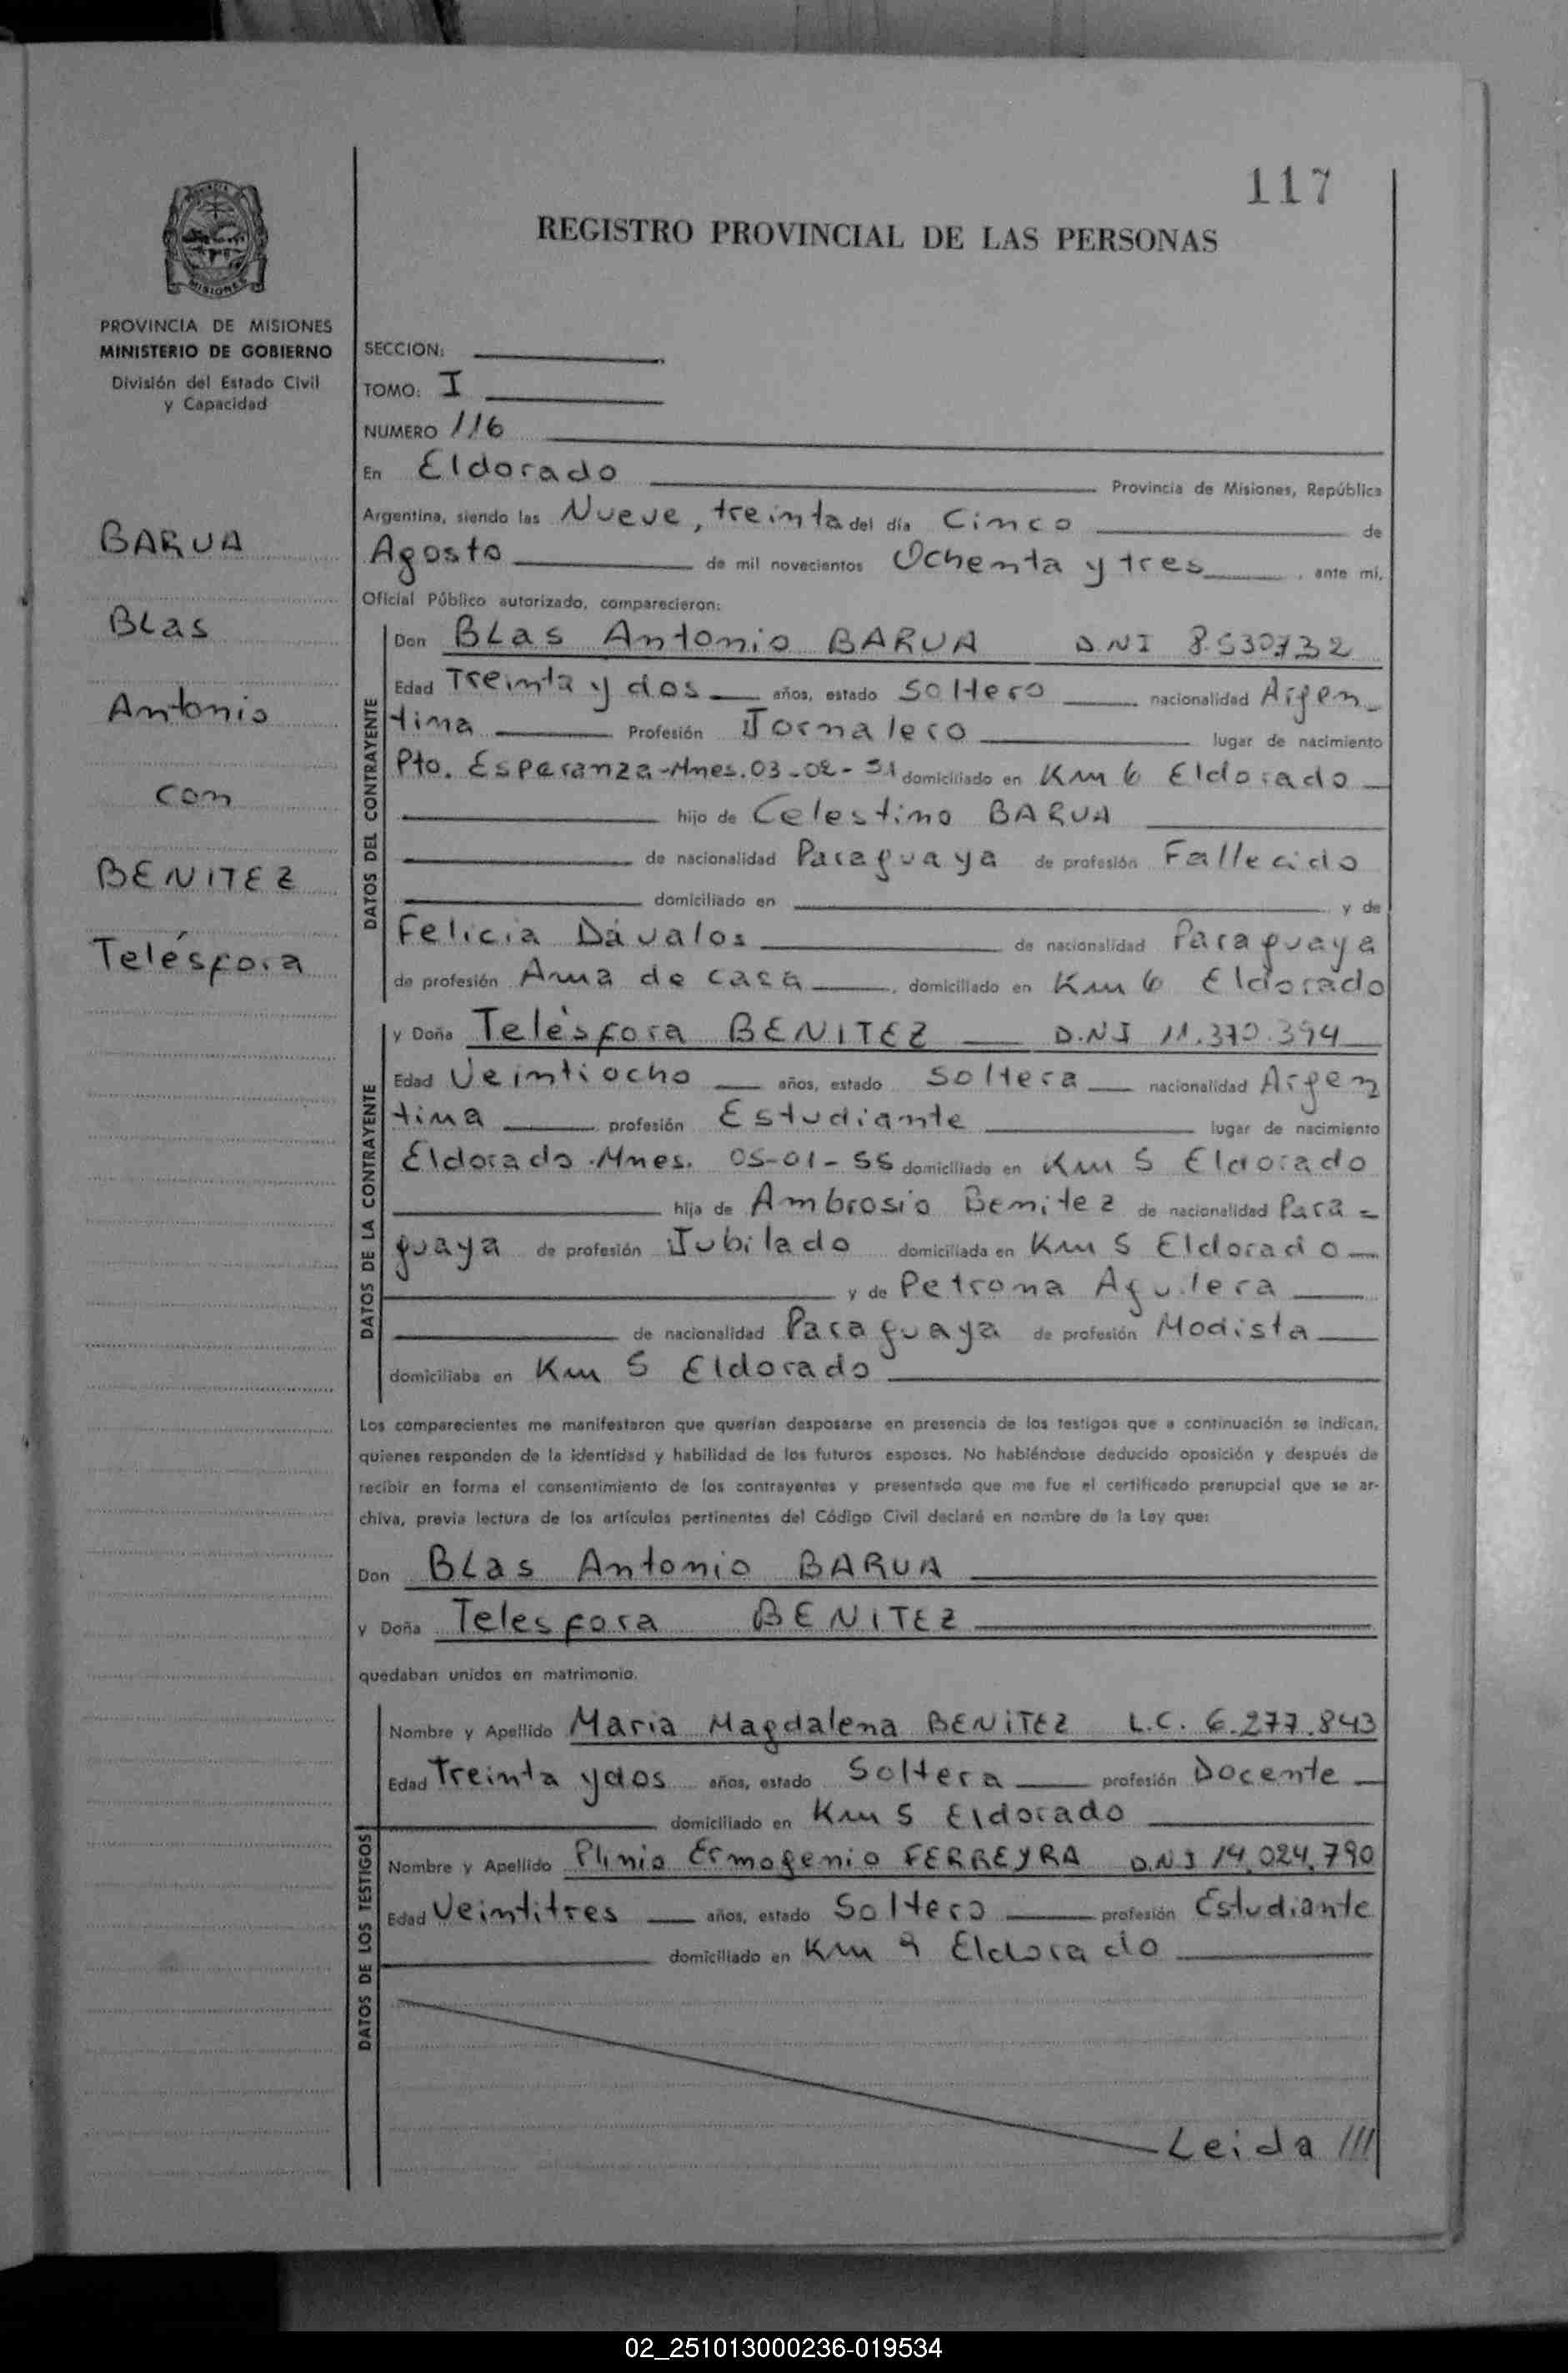 117
REGISTRO PROVINCIAL DE LAS PERSONAS
PROVINCIA DE MISIONES
MINISTERIO DE GOBIERNO
División del Estado Civil
y Capacidad
BARUA
BLas
Antonio
con
BENITEZ
Telésfora
SECCION:
TOMO: I
NUMERO 116
En Eldorado Provincia de Misiones, República
Argentina, siendo las Nueve, treinta del día Cinco de
Agosto de mil novecientos Ochenta y tres, ante mí,
Oficial Público autorizado, comparecieron:
DATOS DEL CONTRAYENTE
Don BLas Antonio BARUA D.NI 8.530.732
Edad Treinta y dos años, estado Soltero nacionalidad Argen-
tina Profesión Jornalero lugar de nacimiento
Pto. Esperanza-Mnes. 03-02-51 domiciliado en Km 6 Eldorado
hijo de Celestino BARUA
de nacionalidad Paraguaya de profesión Fallecido
domiciliado en y de
Felicia Dávalos de nacionalidad Paraguaya
de profesión Ama de casa, domiciliado en Km 6 Eldorado
DATOS DE LA CONTRAYENTE
y Doña Telésfora BENITEZ D.NI 11.370.394
Edad Veintiocho años, estado Soltera nacionalidad Argen
tina profesión Estudiante lugar de nacimiento
Eldorado-Mnes. 05-01-55 domiciliada en Km 5 Eldorado
hija de Ambrosio Benitez de nacionalidad Para=
guaya de profesión Jubilado domiciliada en Km 5 Eldorado
y de Petrona Aguilera
de nacionalidad Paraguaya de profesión Modista
domiciliaba en Km 5 Eldorado
Los comparecientes me manifestaron que querían desposarse en presencia de los testigos que a continuación se indican,
quienes responden de la identidad y habilidad de los futuros esposos. No habiéndose deducido oposición y después de
recibir en forma el consentimiento de los contrayentes y presentado que me fue el certificado prenupcial que se ar-
chiva, previa lectura de los artículos pertinentes del Código Civil declaré en nombre de la Ley que:
Don BLas Antonio BARUA
y Doña Telesfora BENITEZ
quedaban unidos en matrimonio.
DATOS DE LOS TESTIGOS
Nombre y Apellido Maria Magdalena BENITEZ L.C. 6.277.843
Edad Treinta y dos años, estado Soltera profesión Docente
domiciliado en Km 5 Eldorado
Nombre y Apellido Plinio Ermogenio FERREYRA D.N.I 14.024.790
Edad Veintitres años, estado Soltero profesión Estudiante
domiciliado en Km 9 Eldorado
Leida ///
02_251013000236-019534